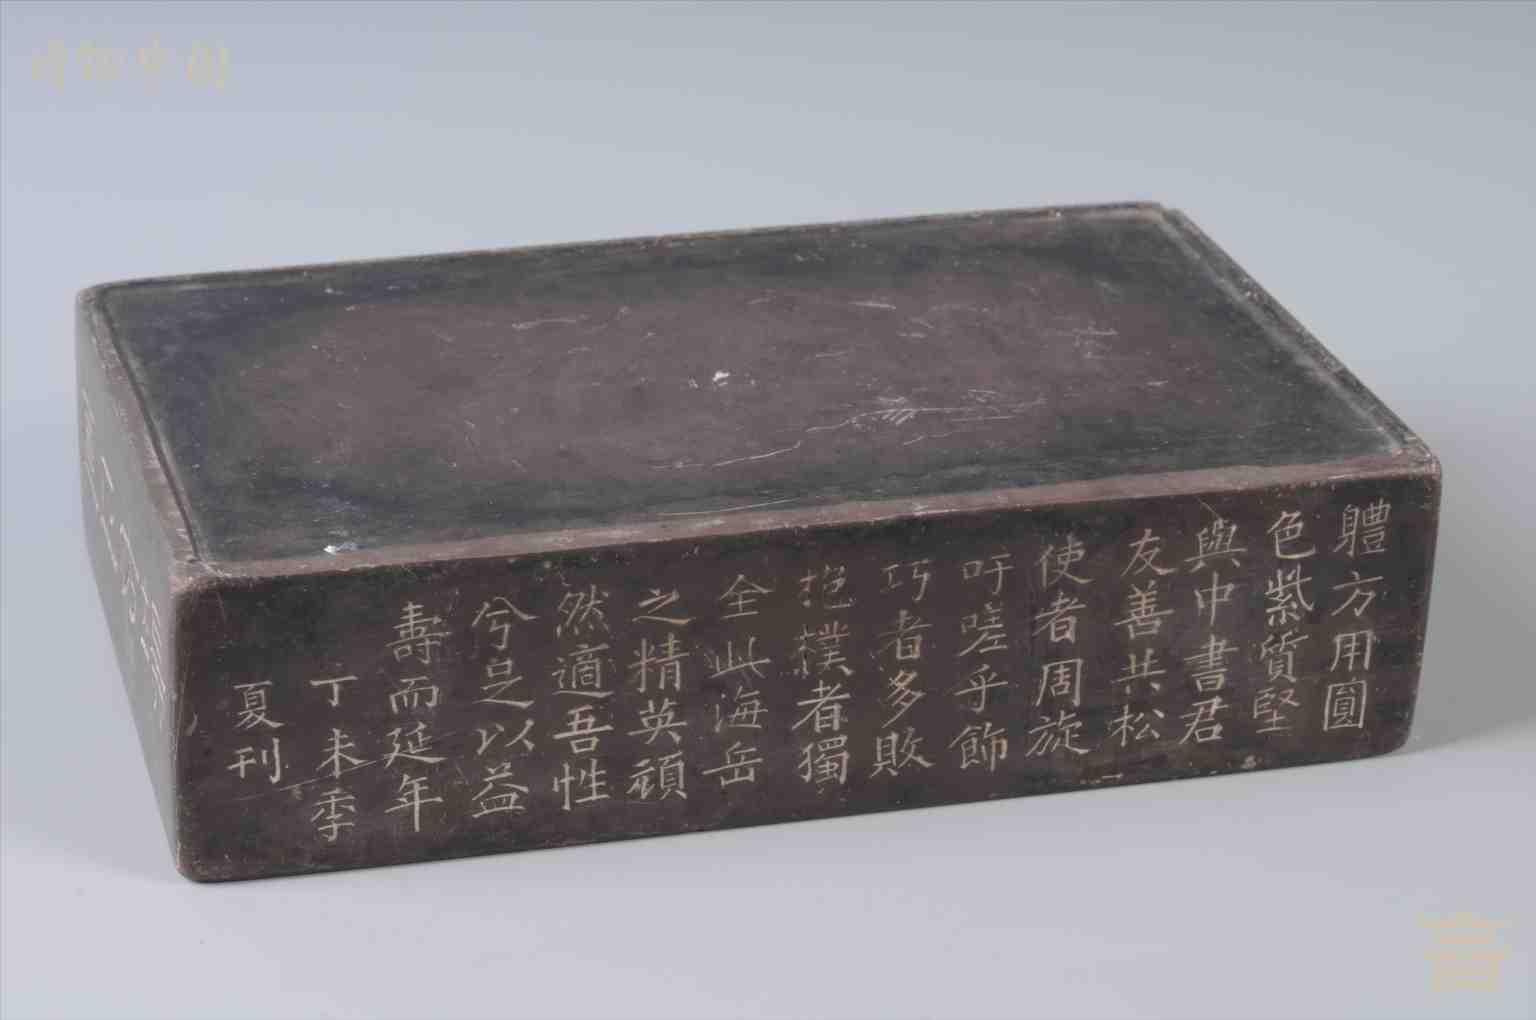 體方用圓
色紫質堅
與中書君
友善共松
使者周旋
吁嗟乎飾
巧者多敗
抱樸者獨
全此海岳
之精英頑
然適吾性
兮是以益
壽而延年
丁未季
夏刊